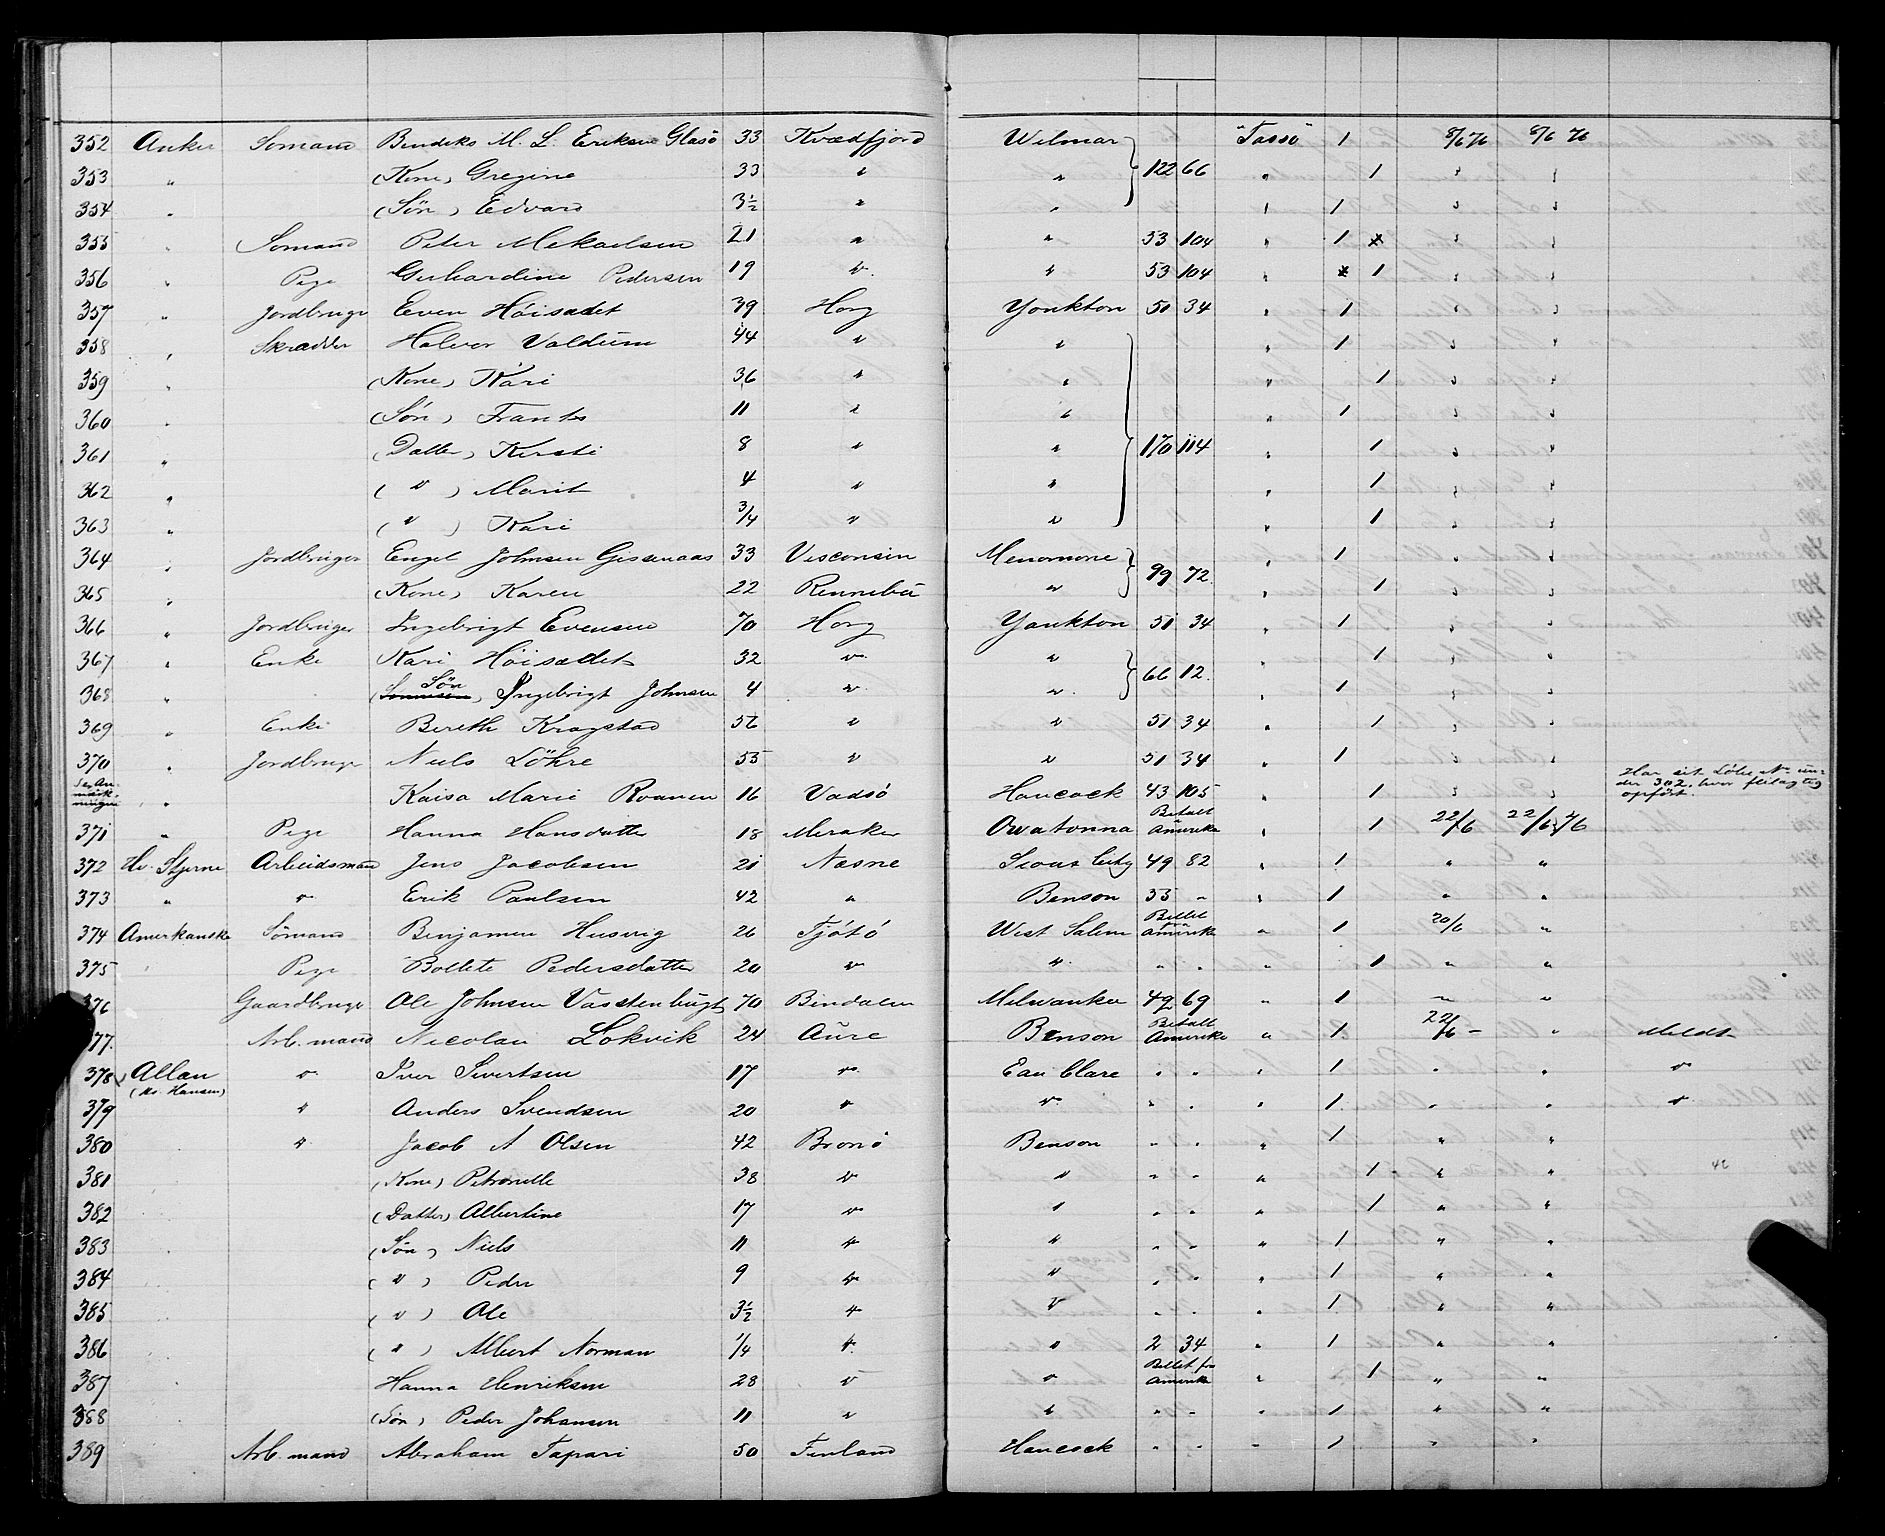 352 Anker Sömand Bendiks M. L. Eriksen Glasö 33 Kvædfjord Wilmar 122 66 "Tassö 1 8/6 76 8/6 76
353 " (Kone) Gregine 33 " " " 1 " "
354 " (Søn) Edvard 3½ " " " 1 " "
355 " Sömand Peter Mekaelsen 21 " " 53 104 " 1 " "
356 " Pige Gerhardine Pedersen 19 " " 53 104 " 1 " "
357 " Jordbruger Even Höisædet 39 Horg Yankton 51 34 " 1 " "
358 " Skrædder Halvor Valdum 44 " " " 1 " "
359 " (Kone) Kari 36 " " " 1 " "
360 " (Søn) Frants 11 " " " 1 " "
361 " (Datter) Kersti 8 " " 170 114 " 1 " "
362 " ( " ) Marit 4 " " " 1 " "
363 " ( " ) Kari 3/4 " " " 1 " "
364 " Jordbruger Engel Johnsen Gissenaas 33 Visconsin Menomone 99 72 " 1 " "
365 " (Kone) Karen 22 Rennebu " " 1 " "
366 " Jordbruger Ingebrigt Evensen 70 Horg Yankton 51 34 " 1 " "
367 " Enke Kari Höisædet 32 " " 66 12 " 1 " "
368 " (Søn) Ingebrigt Johnsen 4 " " " 1 " "
369 " Enke Bereth Kragstad 56 " " 51 34 " 1 " "
370 " Jordbruger Niels Löhre 55 " " 51 34 " 1 " "
Se Anmærkningen " Kaisa Marie Roanen 16 Vadsö Hancock 43 105 " 1 " " Har sit Löbe No under 302, hvor fleilagtig opfört.
371 " Pige Hanna Hansdatter 18 Meraker Owatonna Betalt i Amerika " 1 22/6 22/6 76
372 Hv. Stjerne Arbeidsmand Jens Jacobsen 21 Næsne Sioux City 49 82 " 1 " "
373 " " Erik Paulsen 42 " Benson 55 " " 1 " "
374 Amerikanske Sömand Benjamin Husvig 26 Tjötö West Salem Billet fra Amerika " 1 20/6 "
375 Pige Bollete Pedersdatter 20 " " " " " 1 " "
376 Gaardbruger Ole Johnsen Vassenbugt 70 Bindalen Milwaukee 49 69 " 1 " "
377. Arb. mand Nicolai Lökvik 24 Aure Benson Betalt Amerika " 1 22/6 " Meldt
378 Allan (Kr. Hansen) " Iver Sivertsen 17 " Eau Clare " " " 1 " " "
379 " Anders Svendsen 20 " " " " " 1 " " "
380 " Jacob A Olsen 42 Brönö Benson " " " 1 " "
381 (Kone) Petronelle 38 " " " " " 1 " "
382 (Datter) Albertine 17 " " " " " 1 " "
383 (Søn) Niels 11 " " " " " 1 " "
384 ( " ) Peder 9 " " " " " 1 " "
385 ( " ) Ole 3½ " " " " 1 " "
386 ( " ) Albert Norman 1/4 " " 2 34 " 1 " "
387 Hanna Henriksen 28 " " Billet fra Amerika " 1 " "
388 (Søn) Peder Johansen 11 " " " " " 1 " "
389 Arb. mand Abraham Tapari 50 Finland Hancock " " " 1 " "